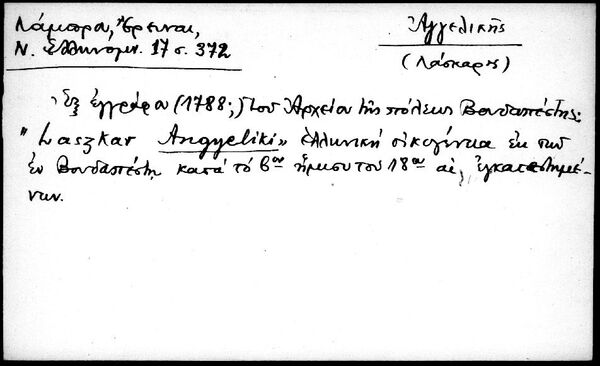 Λάμπρου, Ἔρευναι,
Ν. Ἑλληνομν. 17 σ. 372
Ἀγγελικῆς
(Λάσκαρης)
Ἐξ ἐγγράφου (1788;) τοῦ Ἀρχείου τῆς πόλεως Βουδαπέστης:
"Laszkar Angyeliki» ἑλληνικὴ οἰκογένεια ἐκ τῶν
ἐν Βουδαπέστῃ κατὰ τὸ βον ἥμισυ του 18ου αἰ, ἐγκατεστημέ-
νων.